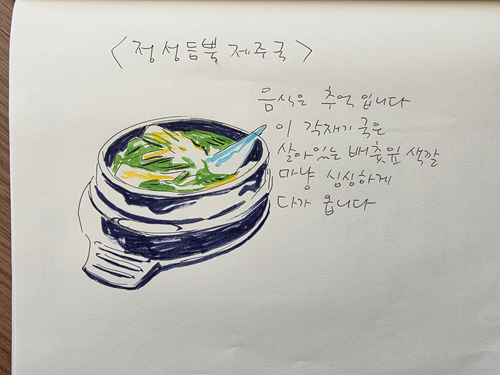 <정성듬뿍 제주국>
음식은 추억입니다
이 각재기 국은
살아있는 배춧잎 색깔
마냥 싱싱하게
다가 옵니다